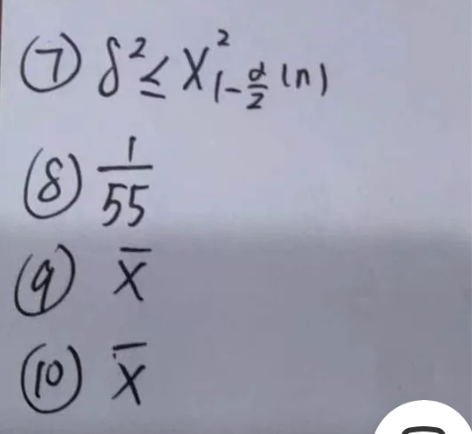 (7) δ² ≤ X²_{1-α/2}(n)
(8) 1/55
(9) x̄
(10) x̄